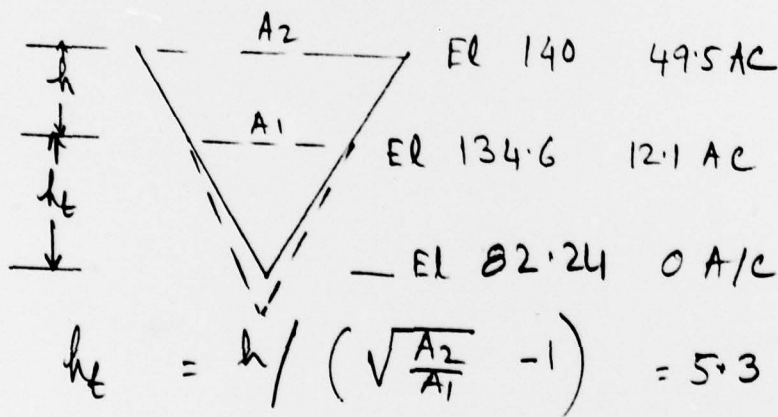 A2 El 140 49.5 AC
h
A1 El 134.6 12.1 AC
ht
El 82.24 0 A/C
ht = h / ( √A2/A1 - 1 ) = 5.3